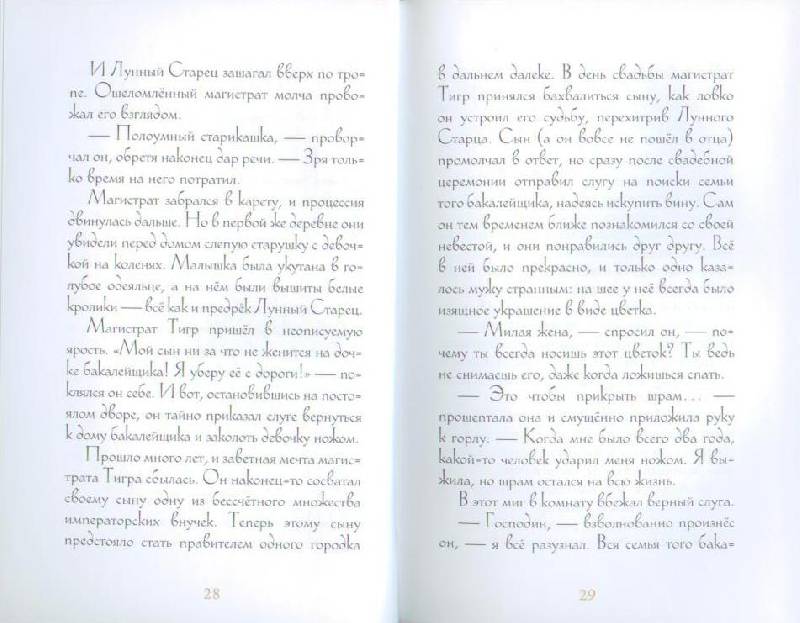 И Лунный Старец зашагал вверх по тро-
пе. Ошеломлённый магистрат молча прово-
жал его взглядом.
— Полоумный старикашка, — провор-
чал он, обретя наконец дар речи. — Зря толь-
ко время на него потратил.
Магистрат забрался в карету, и процессия
двинулась дальше. Но в первой же деревне они
увидели перед домом слепую старушку с девоч-
кой на коленях. Малышка была укутана в го-
лубое одеяльце, а на нём были вышиты белые
кролики — всё как и предрёк Лунный Старец.
Магистрат Тигр пришёл в неописуемую
ярость. «Мой сын ни за что не женится на доч-
ке бакалейщика! Я уберу её с дороги!» — по-
клялся он себе. И вот, остановившись на посто-
ялом дворе, он тайно приказал слуге вернуться
к дому бакалейщика и заколоть девочку ножом.
Прошло много лет, и заветная мечта магис-
трата Тигра сбылась. Он наконец-то сосватал
своему сыну одну из бессчётного множества
императорских внучек. Теперь этому сыну
предстояло стать правителем одного городка
28
в дальнем далеке. В день свадьбы магистрат
Тигр принялся бахвалиться сыну, как ловко
он устроил его судьбу, перехитрив Лунного
Старца. Сын (а он вовсе не пошёл в отца)
промолчал в ответ, но сразу после свадебной
церемонии отправил слугу на поиски семьи
того бакалейщика, надеясь искупить вину. Сам
он тем временем ближе познакомился со своей
невестой, и они понравились друг другу. Всё
в ней было прекрасно, и только одно каза-
лось мужу странным: на шее у неё всегда было
изящное украшение в виде цветка.
— Милая жена, — спросил он, — по-
чему ты всегда носишь этот цветок? Ты ведь
не снимаешь его, даже когда ложишься спать.
— Это чтобы прикрыть шрам... —
прошептала она и смущённо приложила руку
к горлу. — Когда мне было всего два года,
какой-то человек ударил меня ножом. Я вы-
жила, но шрам остался на всю жизнь.
В этот миг в комнату вбежал верный слуга.
— Господин, — взволнованно произнёс
он, — я всё разузнал. Вся семья того бака-
29